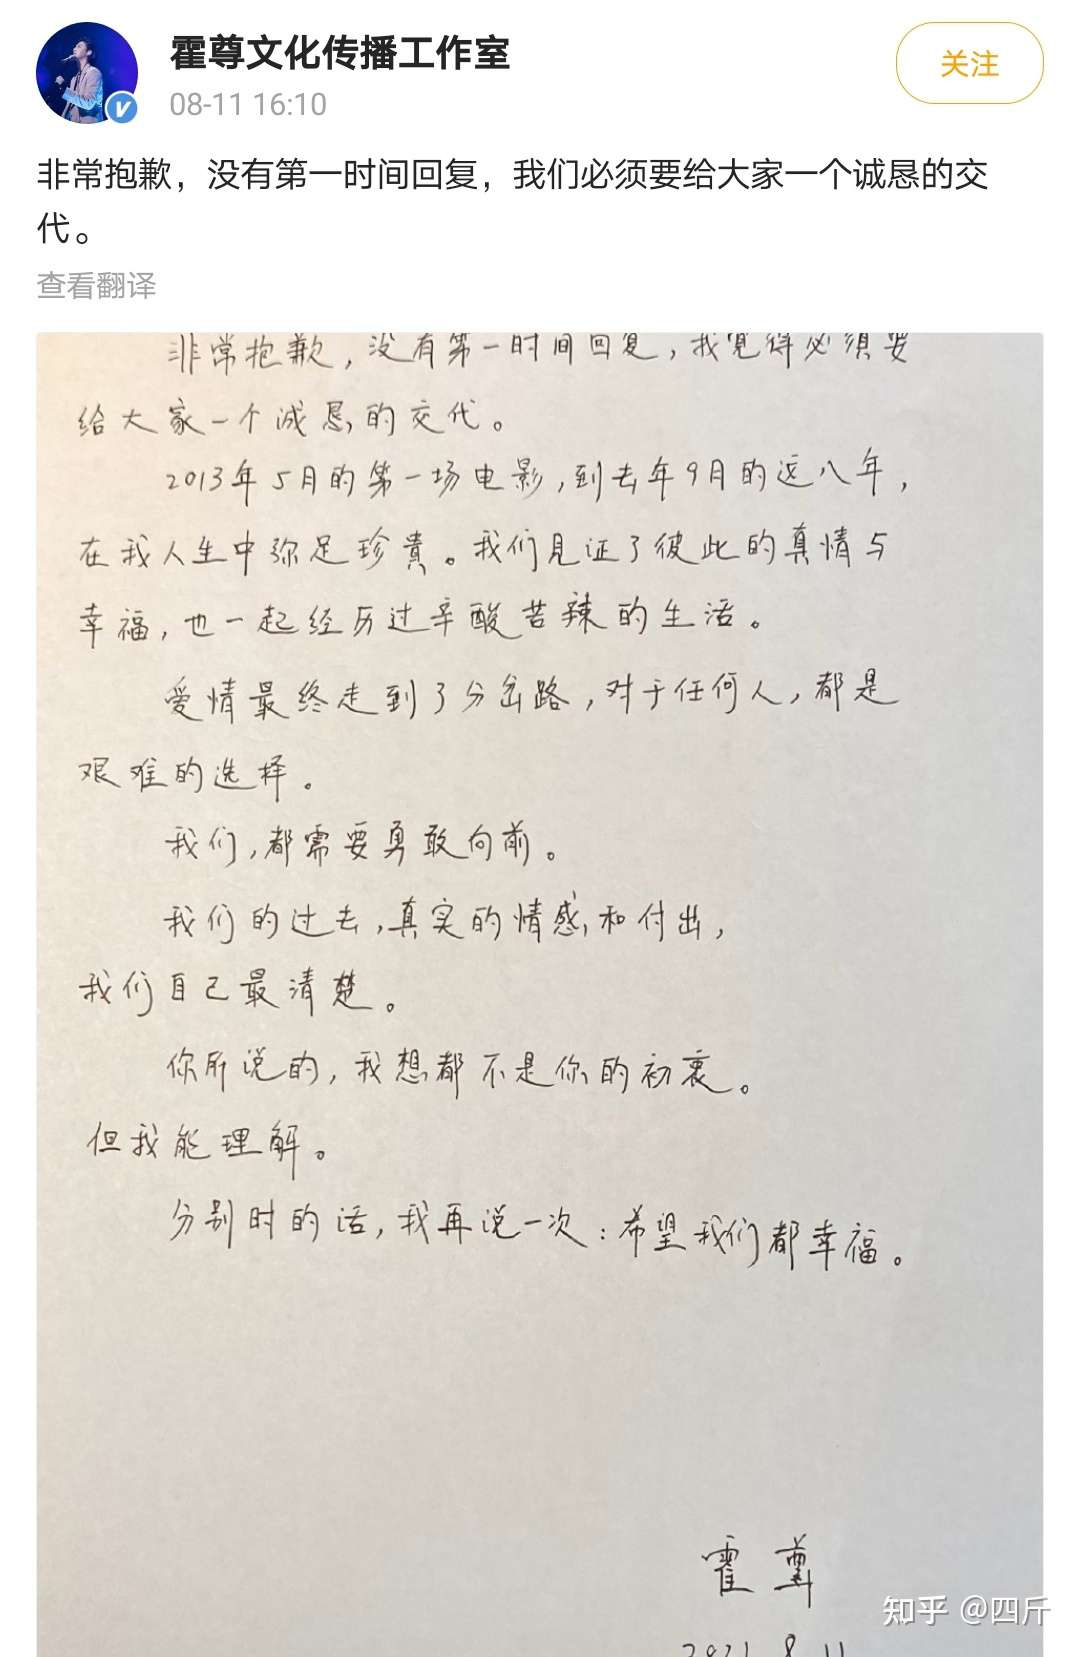 霍尊文化传播工作室
08-11 16:10
关注
非常抱歉，没有第一时间回复，我们必须要给大家一个诚恳的交
代。
查看翻译
非常抱歉，没有第一时间回复，我觉得必须要
给大家一个诚恳的交代。
2013年5月的第一场电影，到去年9月的这八年，
在我人生中弥足珍贵。我们见证了彼此的真情与
幸福，也一起经历过辛酸苦辣的生活。
爱情最终走到了分岔路，对于任何人，都是
艰难的选择。
我们，都需要勇敢向前。
我们的过去，真实的情感和付出，
我们自己最清楚。
你所说的，我想都不是你的初衷。
但我能理解。
分别时的话，我再说一次：希望我们都幸福。
霍尊
2021.8.11
知乎 @四斤